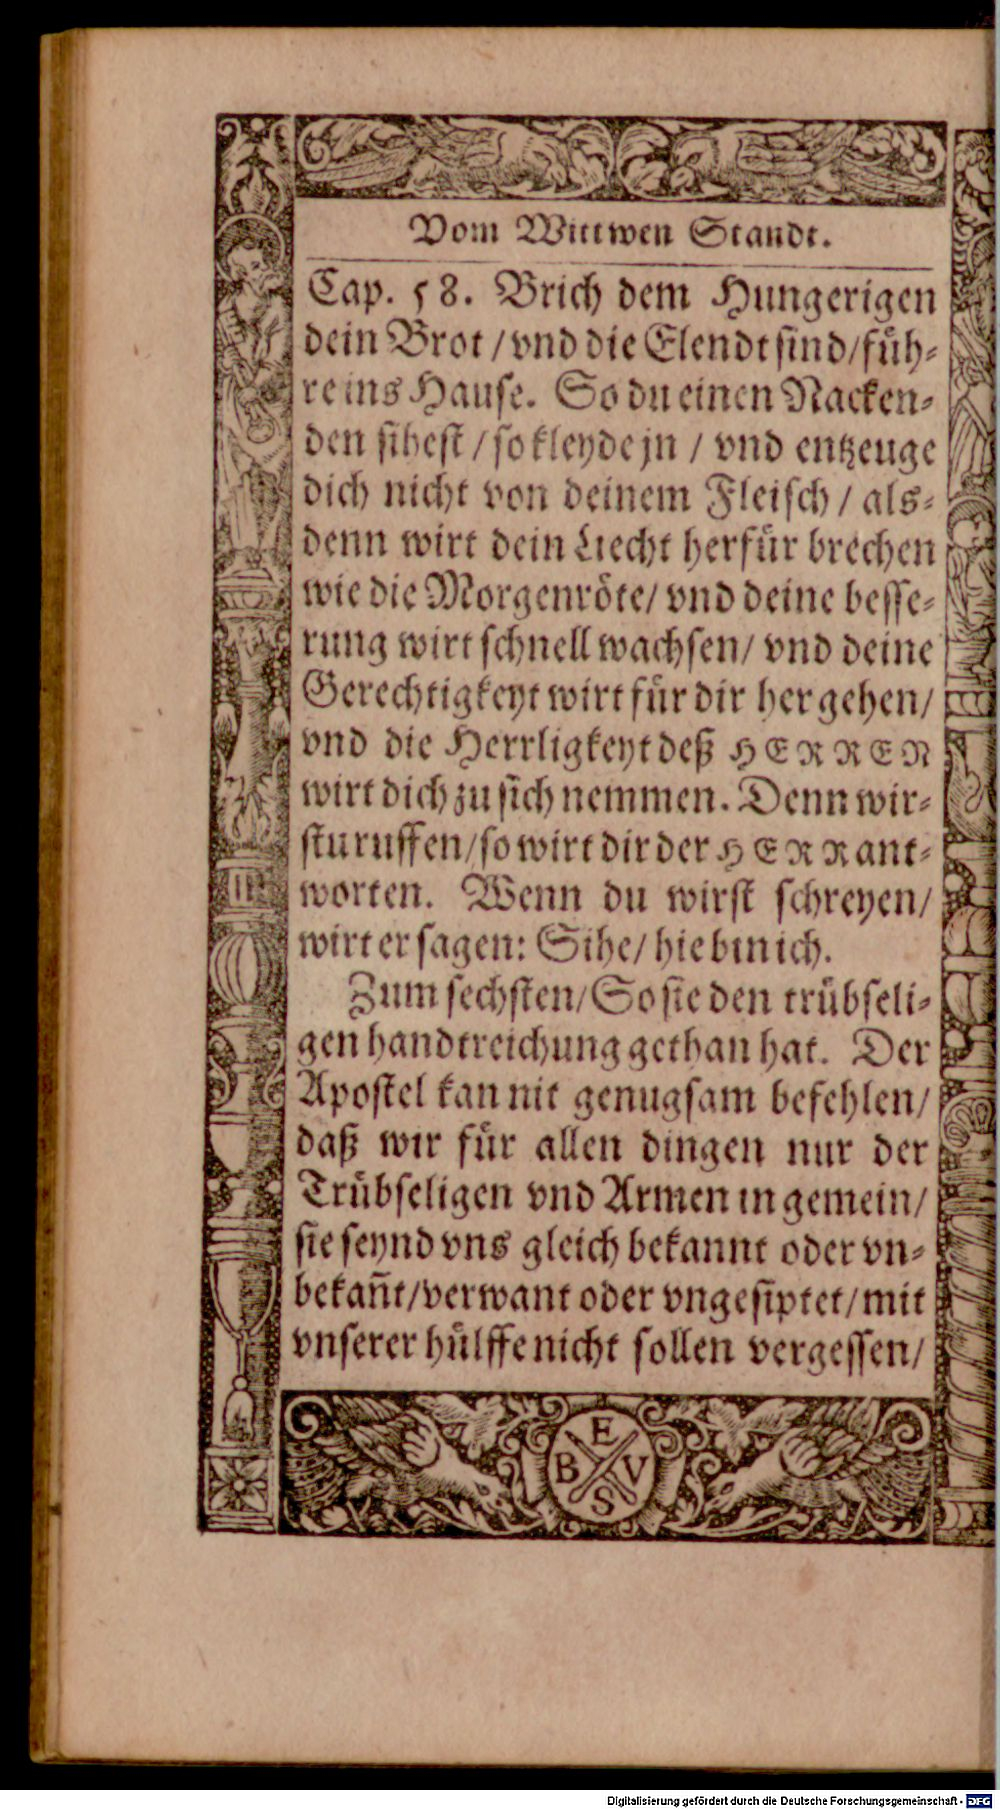 Vom Wittwen Standt.
Cap. 58. Brich dem Hungerigen
dein Brot / vnd die Elendt sind / füh⸗
re ins Hause. So du einen Nacken⸗
den sihest / so kleyde jn / vnd entzeuge
dich nicht von deinem Fleisch / als⸗
denn wirt dein Liecht herfür brechen
wie die Morgenröte / vnd deine besse⸗
rung wirt schnell wachsen / vnd deine
Gerechtigkeyt wirt für dir her gehen /
vnd die Herrligkeyt deß HERREN
wirt dich zu sich nemmen. Denn wir⸗
stu ruffen / so wirt dir der HERR ant⸗
worten. Wenn du wirst schreyen /
wirt er sagen: Sihe / hie bin ich.
Zum sechsten / So sie den trübseli⸗
gen handtreichung gethan hat. Der
Apostel kan nit genugsam befehlen /
daß wir für allen dingen nur der
Trübseligen vnd Armen in gemein /
sie seynd vns gleich bekannt oder vn⸗
bekañt / verwant oder vngesiptet / mit
vnserer hülffe nicht sollen vergessen /
E
B V
S
Digitalisierung gefördert durch die Deutsche Forschungsgemeinschaft - DFG